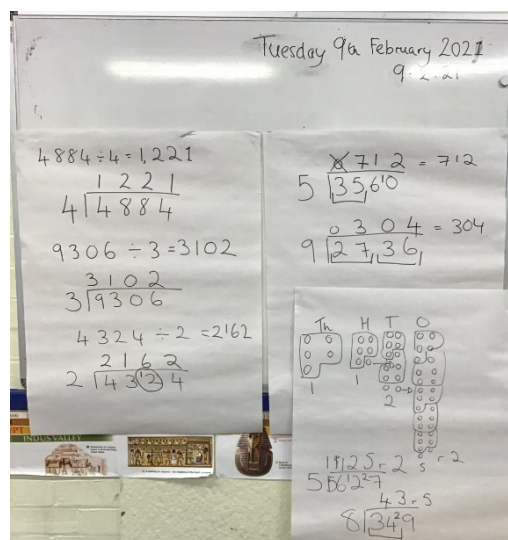 Tuesday 9th February 2021
9.2.21
4884÷4=1,221
1 2 2 1
4 4 8 8 4
9306 ÷ 3 = 3102
3 1 0 2
3 9 3 0 6
4 3 2 4 ÷ 2 = 2162
2 1 6 2
2 4 3 1 2 4
0 7 1 2 = 712
5 3 5, 6 1 0
0 3 0 4 = 304
9 2 7, 3 6
Th H T O
1 1 2 5 r 2
1125 r 2
5 5 6 1 2 2 7
43 r 5
8 3 4 2 9
INDUS VALLEY